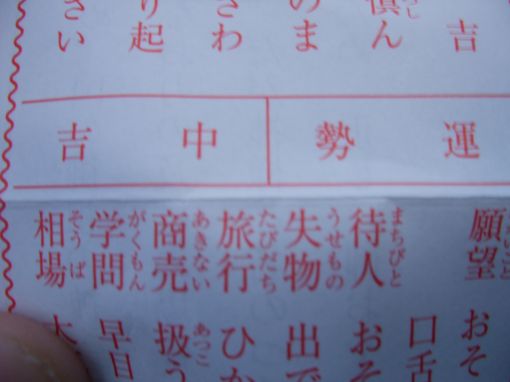 吉
慎ん
のま
さわ
り起
さい
運勢
中吉
願望 おそ
口舌
まちびと
待人 おそ
うせもの
失物 出で
たびだち
旅行 ひか
あきない あつこ
商売 扱う
がくもん
学問 早目
そうば
相場